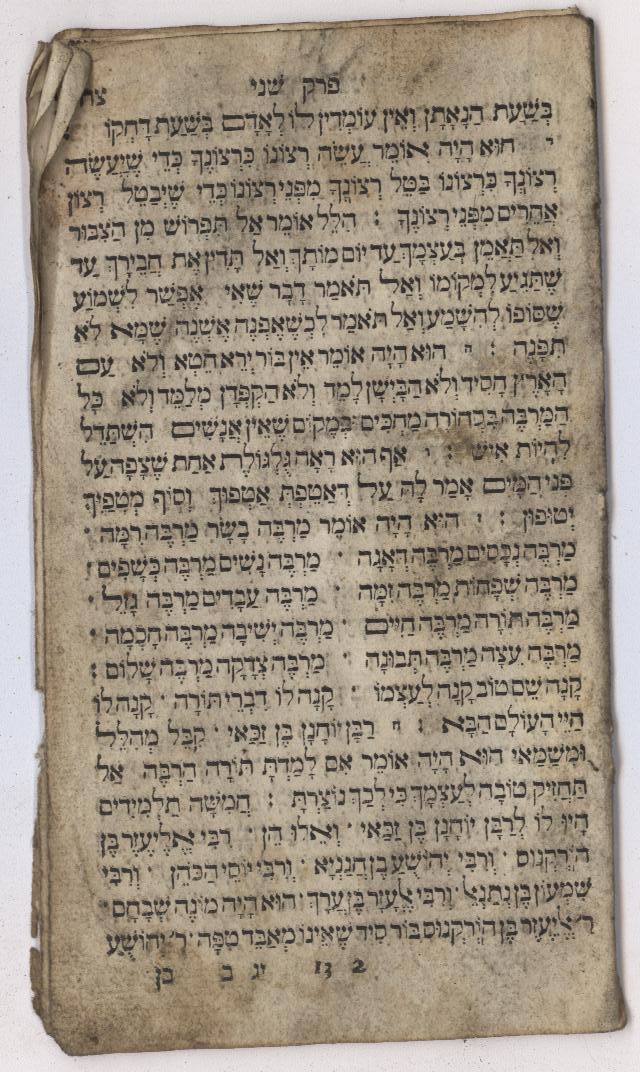 פרק שני
בְּשַׁעַת הַנָאָתָן וְאֵין עוֹמְדִין לוֹ לְאָדָם בְּשַׁעַת דָּחְקוֹ
י הוּא הָיָה אוֹמֵר עֲשֵׂה רְצוֹנוֹ כִּרְצוֹנֶךָ כְּדֵי שֶׁיַּעֲשֶׂה
רְצוֹנְךָ כִּרְצוֹנוֹ בַּטֵּל רְצוֹנְךָ מִפְּנֵי רְצוֹנוֹ כְּדֵי שֶׁיְּבַטֵּל רְצוֹן
אֲחֵרִים מִפְּנֵי רְצוֹנֶךָ : הִלֵּל אוֹמֵר אַל תִּפְרוֹשׁ מִן הַצִּבּוּר
וְאַל תַּאֲמֵן בְּעַצְמְךָ עַד יוֹם מוֹתָךְ וְאַל תָּדִין אֶת חֲבֵירָךְ עַד
שֶׁתַּגִּיעַ לִמְקוֹמוֹ וְאַל תֹּאמַר דָּבָר שֶׁאִי אֶפְשָׁר לִשְׁמוֹעַ
שֶׁסּוֹפוֹ לְהִשָּׁמַע וְאַל תֹּאמַר לִכְשֶׁאֶפָּנֶה אֶשְׁנֶה שֶׁמָּא לֹא
תִפָּנֶה : י הוּא הָיָה אוֹמֵר אֵין בּוּר יְרֵא חֵטְא וְלֹא עַם
הָאָרֶץ חָסִיד וְלֹא הַבַּיְישָׁן לָמֵד וְלֹא הַקַּפְּדָן מְלַמֵּד וְלֹא כָּל
הַמַּרְבֶּה בִּסְחוֹרָה מַחְכִּים בִּמְקוֹם שֶׁאֵין אֲנָשִׁים הִשְׁתַּדֵּל
לִהְיוֹת אִישׁ : י אַף הוּא רָאָה גֻּלְגּוֹלֶת אַחַת שֶׁצָּפָה עַל
פְּנֵי הַמַּיִם אָמַר לָהּ עַל דְּאַטֵפְתְּ אַטְפוּךְ וְסוֹף מְטַפַיִךְ
יְטוּפוּן : י הוּא הָיָה אוֹמֵר מַרְבֶּה בָשָׂר מַרְבֶּה רִמָּה ·
מַרְבֶּה נְכָסִים מַרְבֶּה דְאָגָה · מַרְבֶּה נָשִׁים מַרְבֶּה כְּשָׁפִים :
מַרְבֶּה שְׁפָחוֹת מַרְבֶּה זִמָּה · מַרְבֶּה עֲבָדִים מַרְבֶּה גָזֵל ·
מַרְבֶּה תּוֹרָה מַרְבֶּה חַיִּים · מַרְבֶּה יְשִׁיבָה מַרְבֶּה חָכְמָה ·
מַרְבֶּה עֵצָה מַרְבֶּה תְּבוּנָה · מַרְבֶּה צְדָקָה מַרְבֶּה שָׁלוֹם :
קָנָה שֵׁם טוֹב קָנָה לְעַצְמוֹ · קָנָה לוֹ דִבְרֵי תוֹרָה · קָנָה לוֹ
חַיֵּי הָעוֹלָם הַבָּא : י רַבָּן יוֹחָנָן בֶּן זַכַּאי · קִבֵּל מֵהִלֵּל
וּמִשַׁמַּאי הוּא הָיָה אוֹמֵר אִם לָמַדְתָּ תּוֹרָה הַרְבֵּה אַל
תַּחֲזִיק טוֹבָה לְעַצְמְךָ כִּי לְכַךְ נוֹצָרְתָּ : חֲמִשָּׁה תַלְמִידִים
הָיוּ לוֹ לְרַבָּן יוֹחָנָן בֶּן זַכַּאי · וְאֵלּוּ הֵן · רַבִּי אֱלִיעֶזֶר בֶּן
הוֹרְקְנוֹס · וְרַבִּי יְהוֹשֻׁעַ בֶן חֲנַנְיָא · וְרַבִּי יוֹסֵי הַכֹּהֵן · וְרַבִּי
שִׁמְעוֹן בֶּן נְתַנְאֵל · וְרַבִּי אֶלְעָזָר בֶּן עֲרָךְ · הוּא הָיָה מוֹנֶה שְׁבָחָם ·
ר׳ אֱלִיעֶזֶר בֶּן הוֹרְקְנוֹס בּוֹר סִיד שֶׁאֵינוֹ מְאַבֵּד טִפָּה · ר׳ יְהוֹשֻׁעַ
2 13 יג ב בן